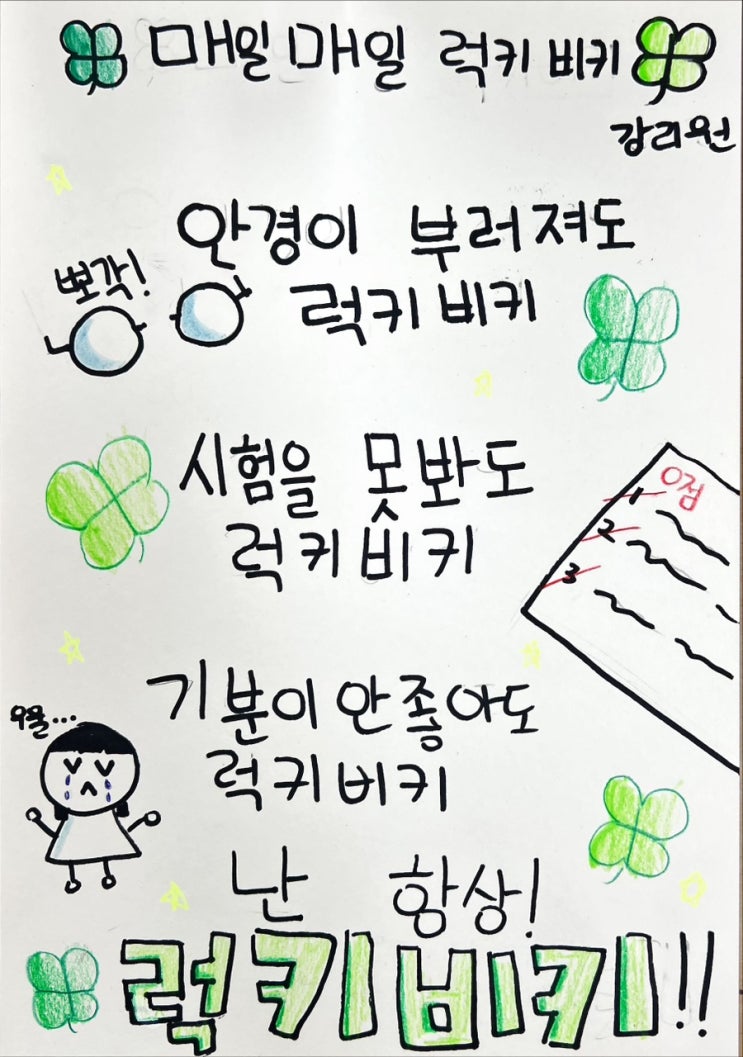 매일매일 럭키비키
강리원
안경이 부러져도
뽀각!
럭키비키
시험을 못봐도
럭키비키
0점
1
2
3
기분이 안좋아도
우울...
럭키비키
난 항상!
럭키비키!!